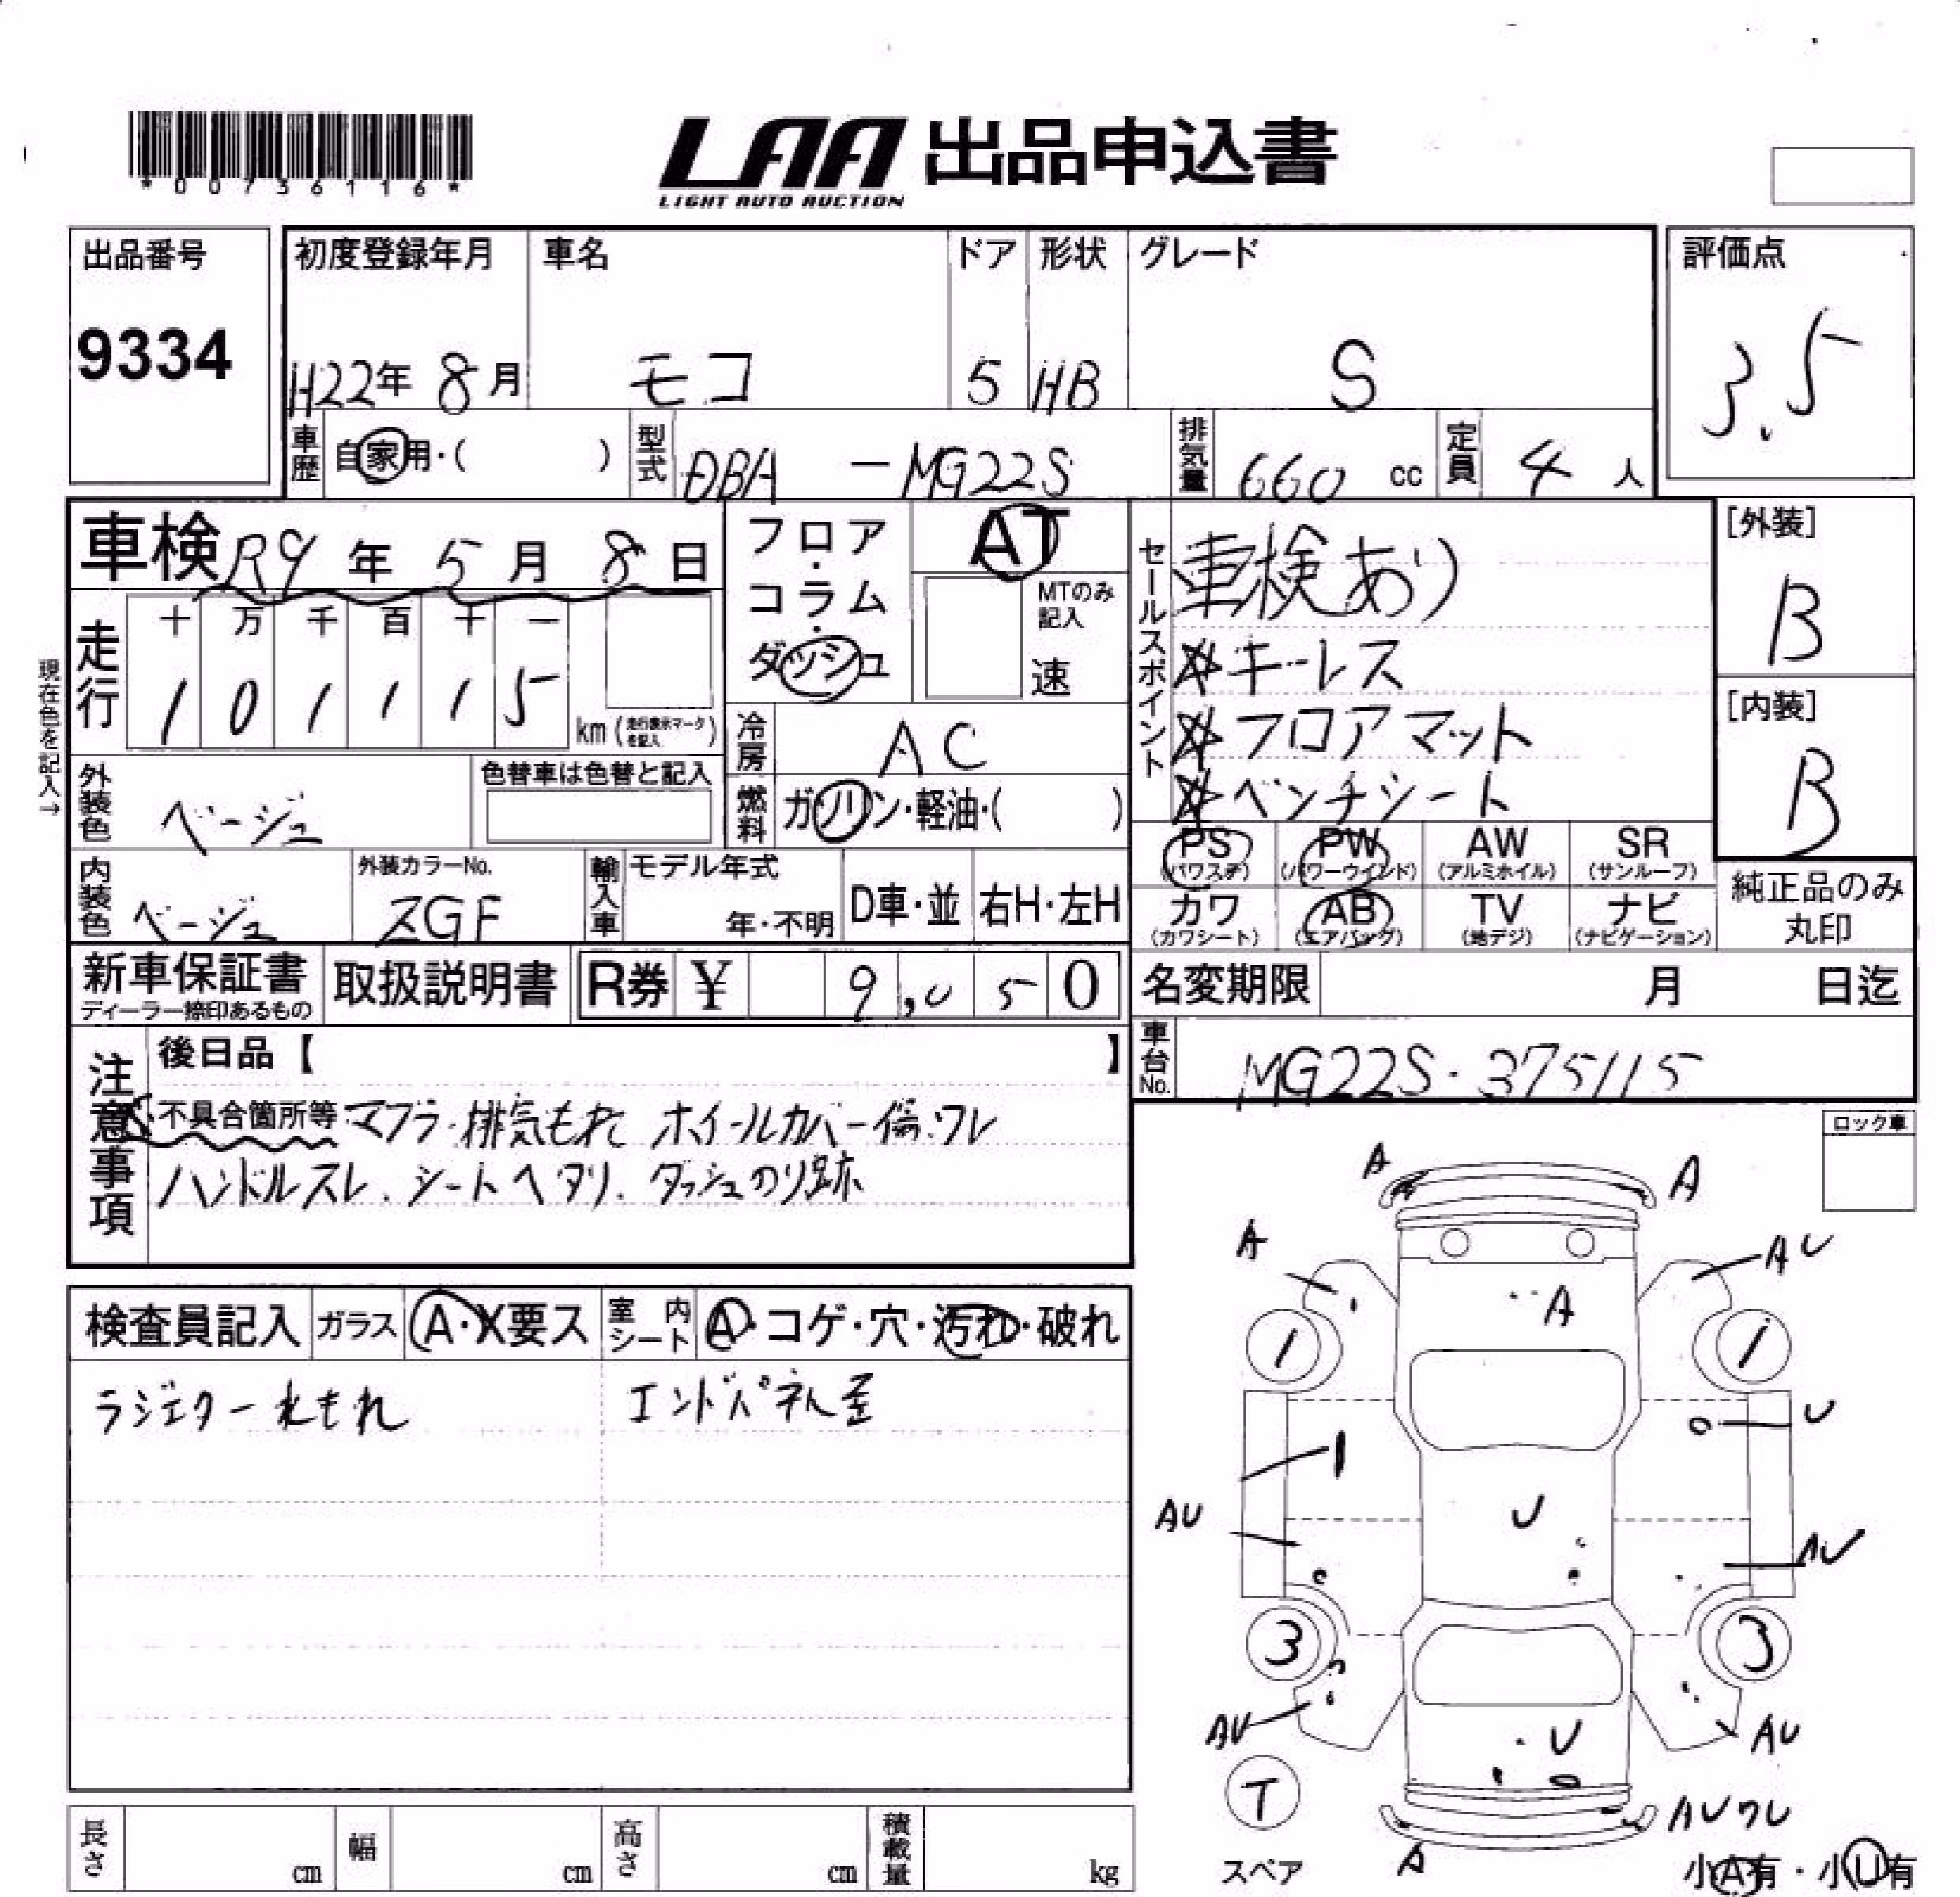 *00736116*
LAA 出品申込書
LIGHT AUTO AUCTION
出品番号
9334
初度登録年月
H22年 8月
車名
モコ
ドア
5
形状
HB
グレード
S
評価点
3.5
車歴
自家用・( )
型式
DBA-MG22S
排気量
660 cc
定員
4 人
車検 R9年 5月 8日
フロア・コラム・ダッシュ
AT
MTのみ記入
速
セールスポイント
車検あり
☆キーレス
☆フロアマット
☆ベンチシート
[外装]
B
[内装]
B
現在色を記入→
走行
十 万 千 百 十 一
1 0 1 1 1 5
km (走行表示マークを記入)
冷房
AC
外装色
ベージュ
色替車は色替と記入
燃料
ガソリン・軽油・( )
PS (パワステ)
PW (パワーウインド)
AW (アルミホイル)
SR (サンルーフ)
カワ (カワシート)
AB (エアバッグ)
TV (地デジ)
ナビ (ナビゲーション)
純正品のみ丸印
内装色
ベージュ
外装カラーNo.
ZGF
輸入車
モデル年式
年・不明
D車・並
右H・左H
新車保証書
ディーラー捺印あるもの
取扱説明書
R券 ¥ 9,050
名変期限 月 日迄
車台No.
MG22S-375115
注意事項
後日品【 】
不具合箇所等 マフラ・排気もれ ホイールカバー傷・ワレ
ハンドルスレ、シートヘタリ、ダッシュのり跡
ロック車
検査員記入
ガラス
A・X要ス
室内シート
A・コゲ・穴・汚れ・破れ
ラジエター水もれ
エンドパネル歪
A A
A AU
A
1 1
U
1
AU U AU
3 3
AU U AU
T
スペア
AU ワレ
A
小A有・小U有
長さ cm
幅 cm
高さ cm
積載量 kg